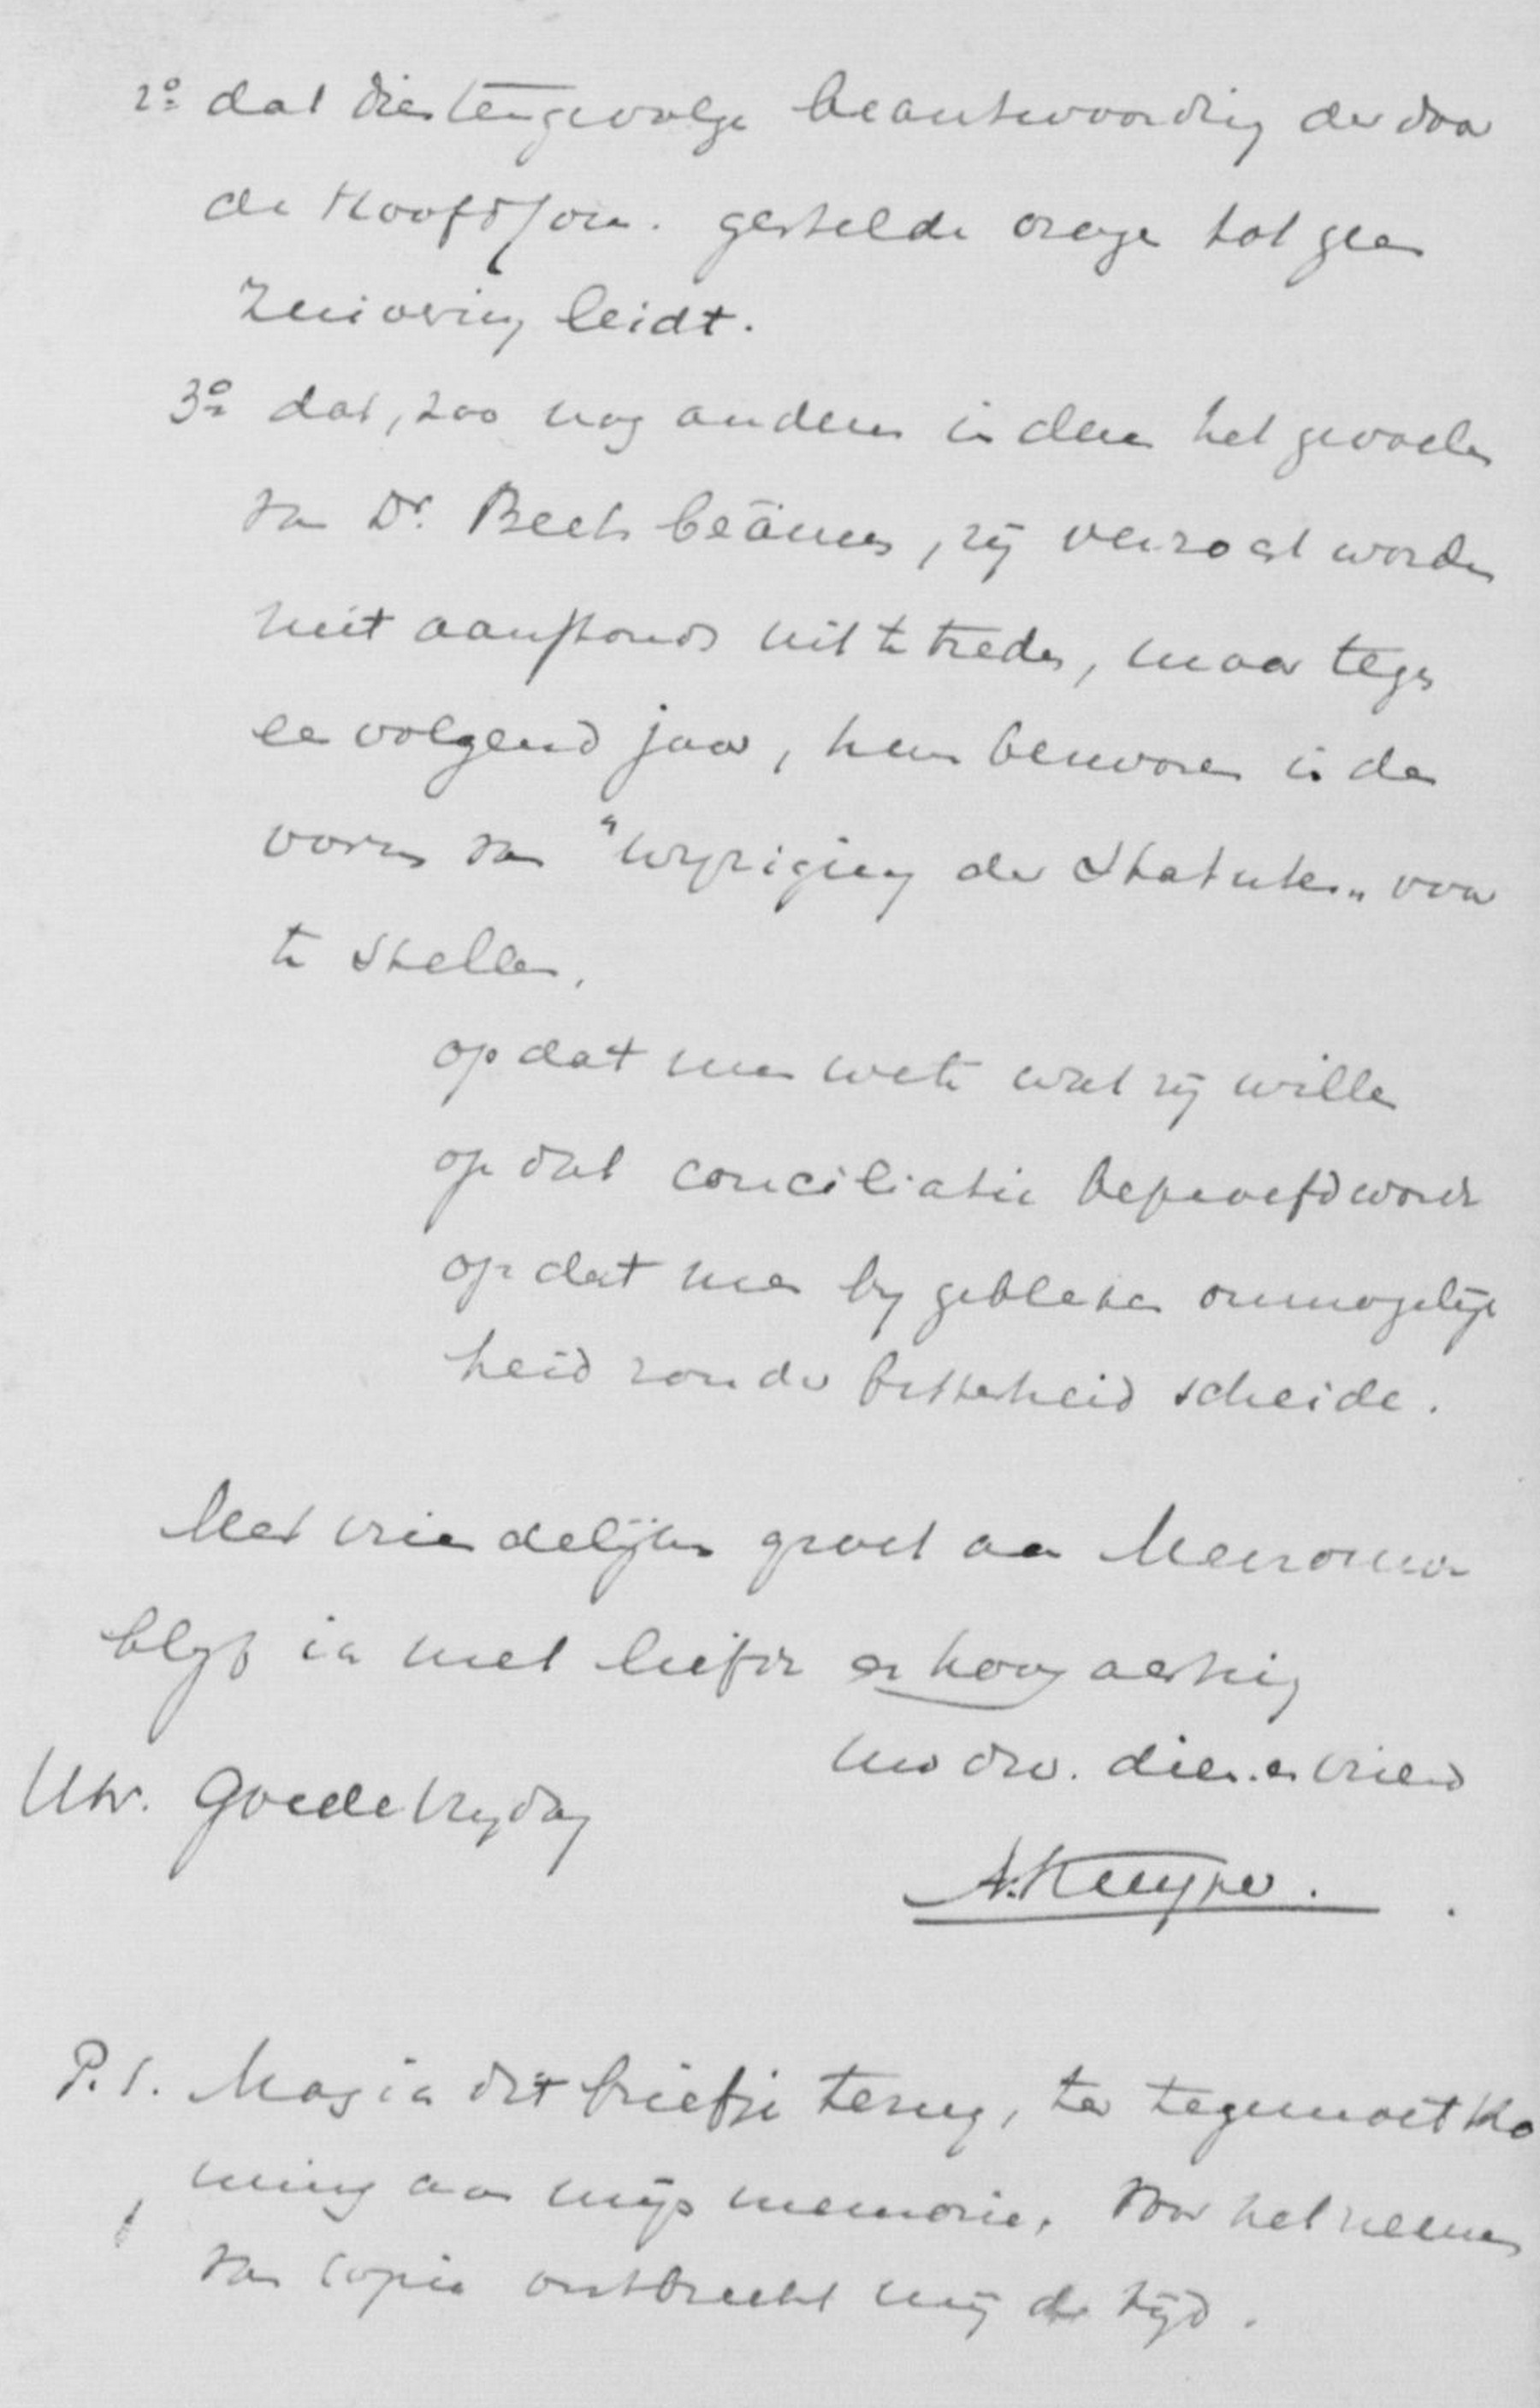 2º dat dientengevolge beantwoording der door
de Hoofdcom. gestelde vrage tot geen
zuivering leidt.
3º dat, zoo nog anderen in deze het gevoelen
van Dr. Beets beämen, zij verzocht worden
niet aanstonds uit te treden, maar tegen
een volgend jaar, hun bezwaren in den
vorm van "wijziging der Statuten" voor
te stellen,
opdat men wete wat zij willen
opdat conciliatie beproefd worde
opdat men by gebleken onmogelijk
heid zonder bitterheid scheide.
Met vriendelijken groet aan Mevrouw
blijf ik met liefde en hoogachting
Uw dw. dien. en vriend
Utr. Goede Vrijdag
A. Kuyper.
P.S. Mag ik dit briefje terug, ter tegemoetko
ming aan mijn memorie. Voor het nemen
van copie ontbreekt mij de tijd.